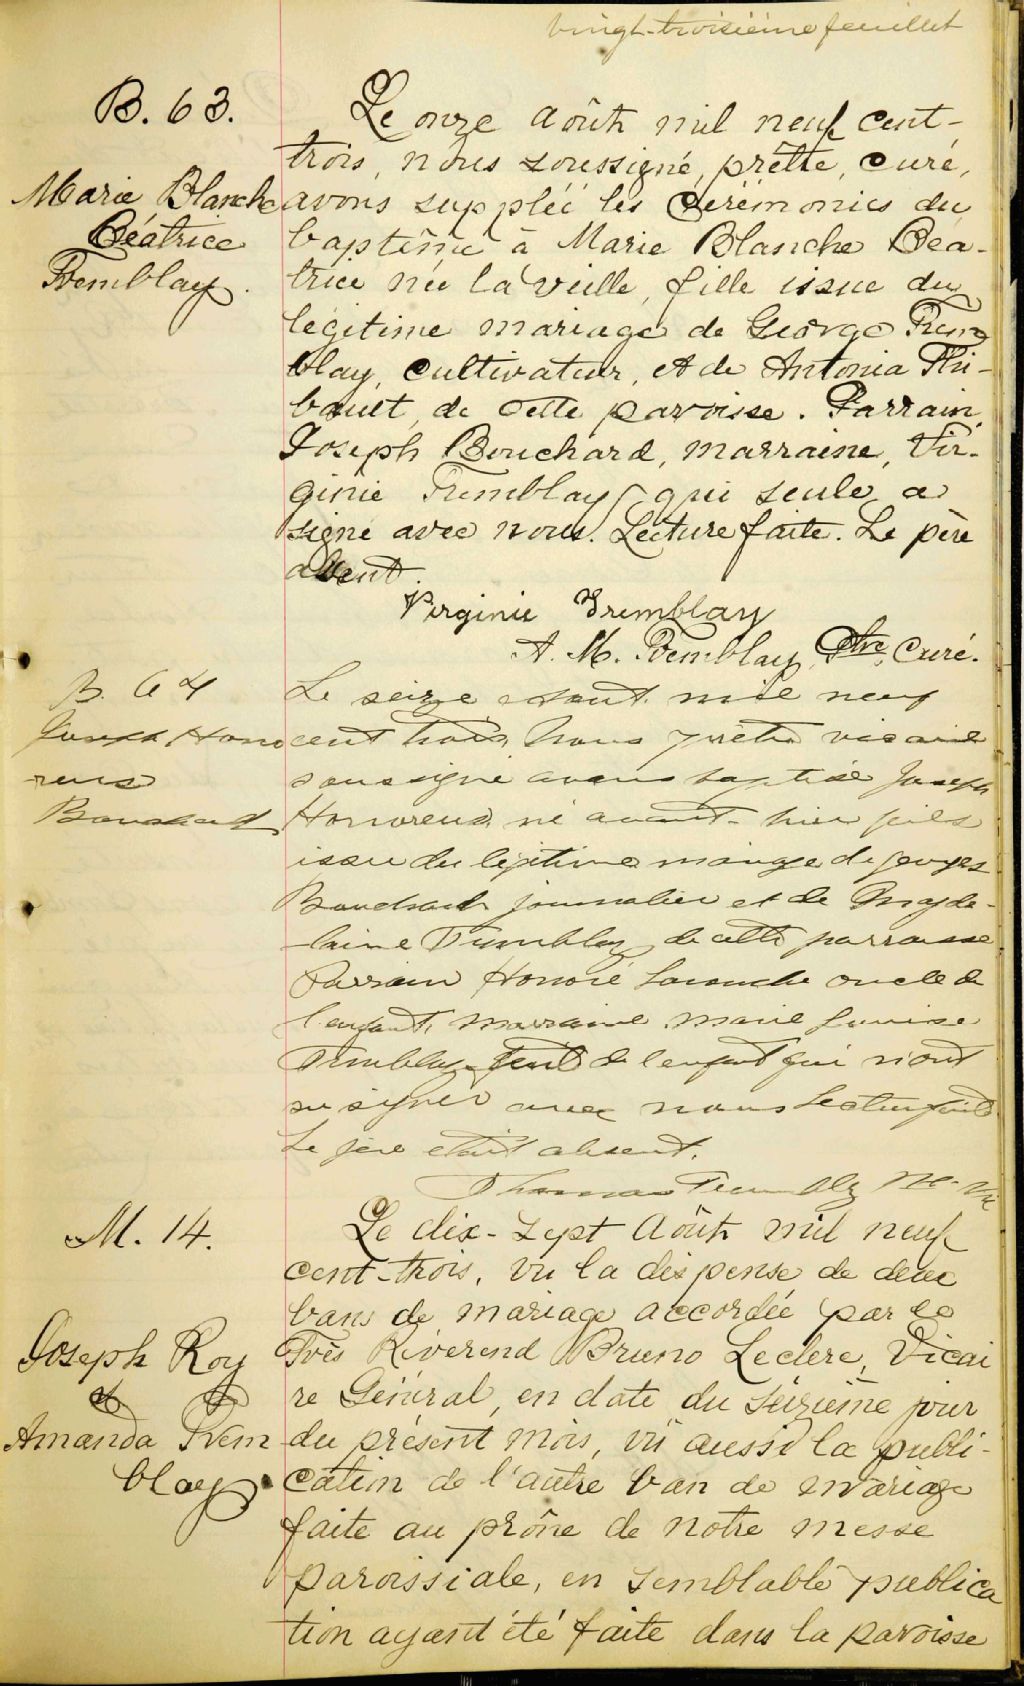 vingt-troisième feuillet
B. 63.
Marie Blanche
Béatrice
Tremblay.
Le onze Août mil neuf cent-
trois, nous soussigné, prêtre, curé,
avons supplée les cérémonies du
baptême à Marie Blanche Béa-
trice née la veille, fille issue du
légitime mariage de George Trem
blay, cultivateur, et de Antonia Thi-
bault, de cette paroisse. Parrain,
Joseph Bouchard, marraine, Vir-
ginie Tremblay qui seule a
signé avec nous. Lecture faite. Le père
absent.
Virginie Tremblay
A. M. Tremblay, Ptre, Curé.
B. 64
Joseph Hono
reus
Bouchard
Le seize Aout mil neuf
cent trois Nous prêtre vicaire
soussigné avons baptisé Joseph
Honoreus né avant-hier fils
issu du légitime mariage de Georges
Bouchard journalier et de Magde-
laine Tremblay de cette parroisse
Parrain Honoré oncle de
l'enfant, marraine Marie Louise
Tremblay de l'enfant qui n'ont
su signer avec nous Lecture faite
Le père était absent.
Thomas Tremblay Vic
M. 14.
Joseph Roy
&
Amanda Trem
blay
Le dix-sept Août mil neuf
cent-trois, vu la dispense de deux
bans de mariage accordée par le
Très Révérend Bruno Leclerc, Vicai
re Général, en date du seizième jour
du présent mois, vu aussi la publi-
cation de l'autre ban de mariage
faite au prône de notre messe
paroissiale, en semblable publica
tion ayant été faite dans la paroisse